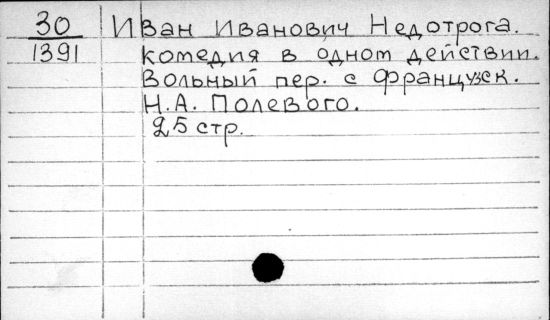 30 Иван Иванович Недотрога.
1391 комедия в одном действии.
Вольный пер. с Французск.
Н.А. Полевого.
25 стр.